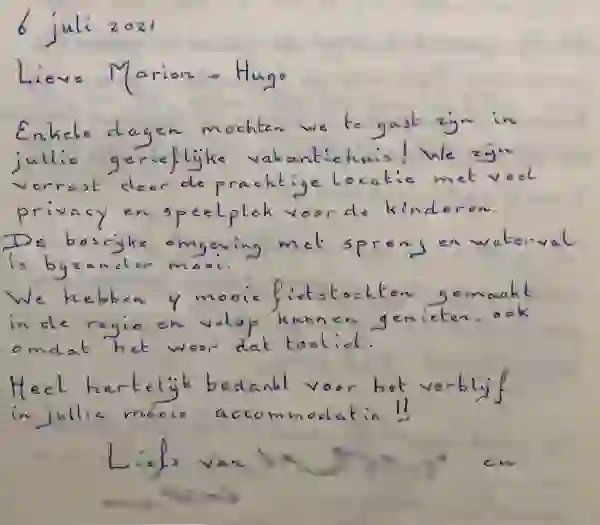 6 juli 2021
Lieve Marion - Hugo
Enkele dagen mochten we te gast zijn in
jullie gerieflijke vakantiehuis! We zijn
verrast door de prachtige locatie met veel
privacy en speelplek voor de kinderen.
De bosrijke omgeving met spreng en waterval
is byzonder mooi.
We hebben 4 mooie fietstochten gemaakt
in de regio en volop kunnen genieten. ook
omdat het weer dat toeliet.
Heel hartelijk bedankt voor het verblijf
in jullie mooie accommodatie!!
Liefs van en